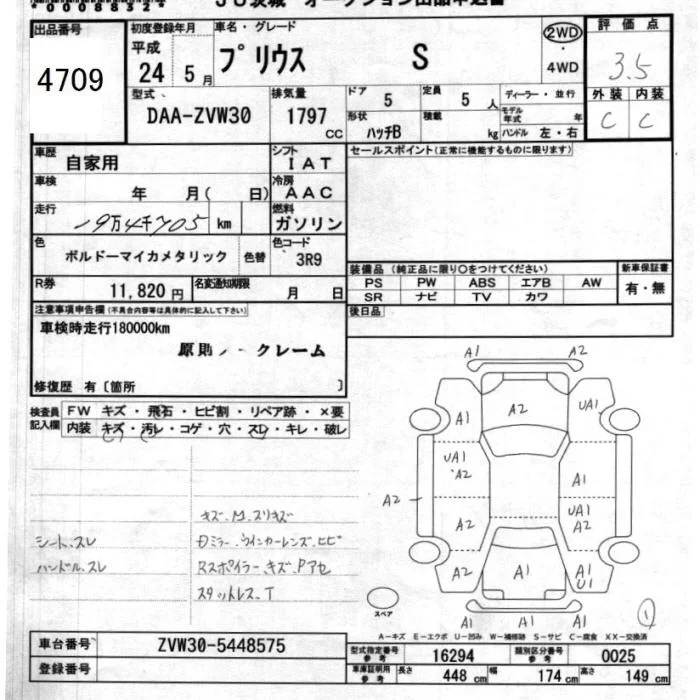 出品番号
4709
初度登録年月
平成
24 5月
車名・グレード
プリウス S
2WD
4WD
評価点
3.5
外装 内装
C C
型式
DAA-ZVW30
排気量
1797 CC
ドア 5
定員 5 人
形状 ハッチB
積載 kg
ディーラー・並行
モデル年式 年
ハンドル 左・右
車歴 自家用
シフト IAT
セールスポイント(正常に機能するものに限ります)
車検 年 月( 日)
冷房 AAC
走行 19万4千705 km
燃料 ガソリン
色 ボルドーマイカメタリック 色替
色コード 3R9
装備品(純正品に限り○をつけてください)
新車保証書
PS PW ABS エアB AW
SR ナビ TV カワ
有・無
R券 11,820円
名変通知期限 月 日
後日品
注意事項申告欄(不具合内容等は具体的に記入して下さい)
車検時走行180000km
原則ノークレーム
修復歴 有〔箇所 〕
検査員記入欄
FW キズ・飛石・ヒビ割・リペア跡・×要
内装 キズ・汚レ・コゲ・穴・スレ・キレ・破レ
キズ、M、スリキズ
シート、スレ
Dミラー、ウインカーレンズ、ヒビ
ハンドル、スレ
Rスポイラー、キズ、Pアセ
スタットレス、T
A1 A2
A1 A2 UA1
UA1 A2 A1
A2 UA1 A2
A2
A2 A1 A1 U1
A1 A1 A1
スペア
1
A－キズ E－エクボ U－凹み W－補修跡 S－サビ C－腐食 XX－交換済
車台番号 ZVW30-5448575
登録番号
型式指定番号 参考 16294
類別区分番号 参考 0025
車庫証明用 参考 長さ 448 cm 幅 174 cm 高さ 149 cm